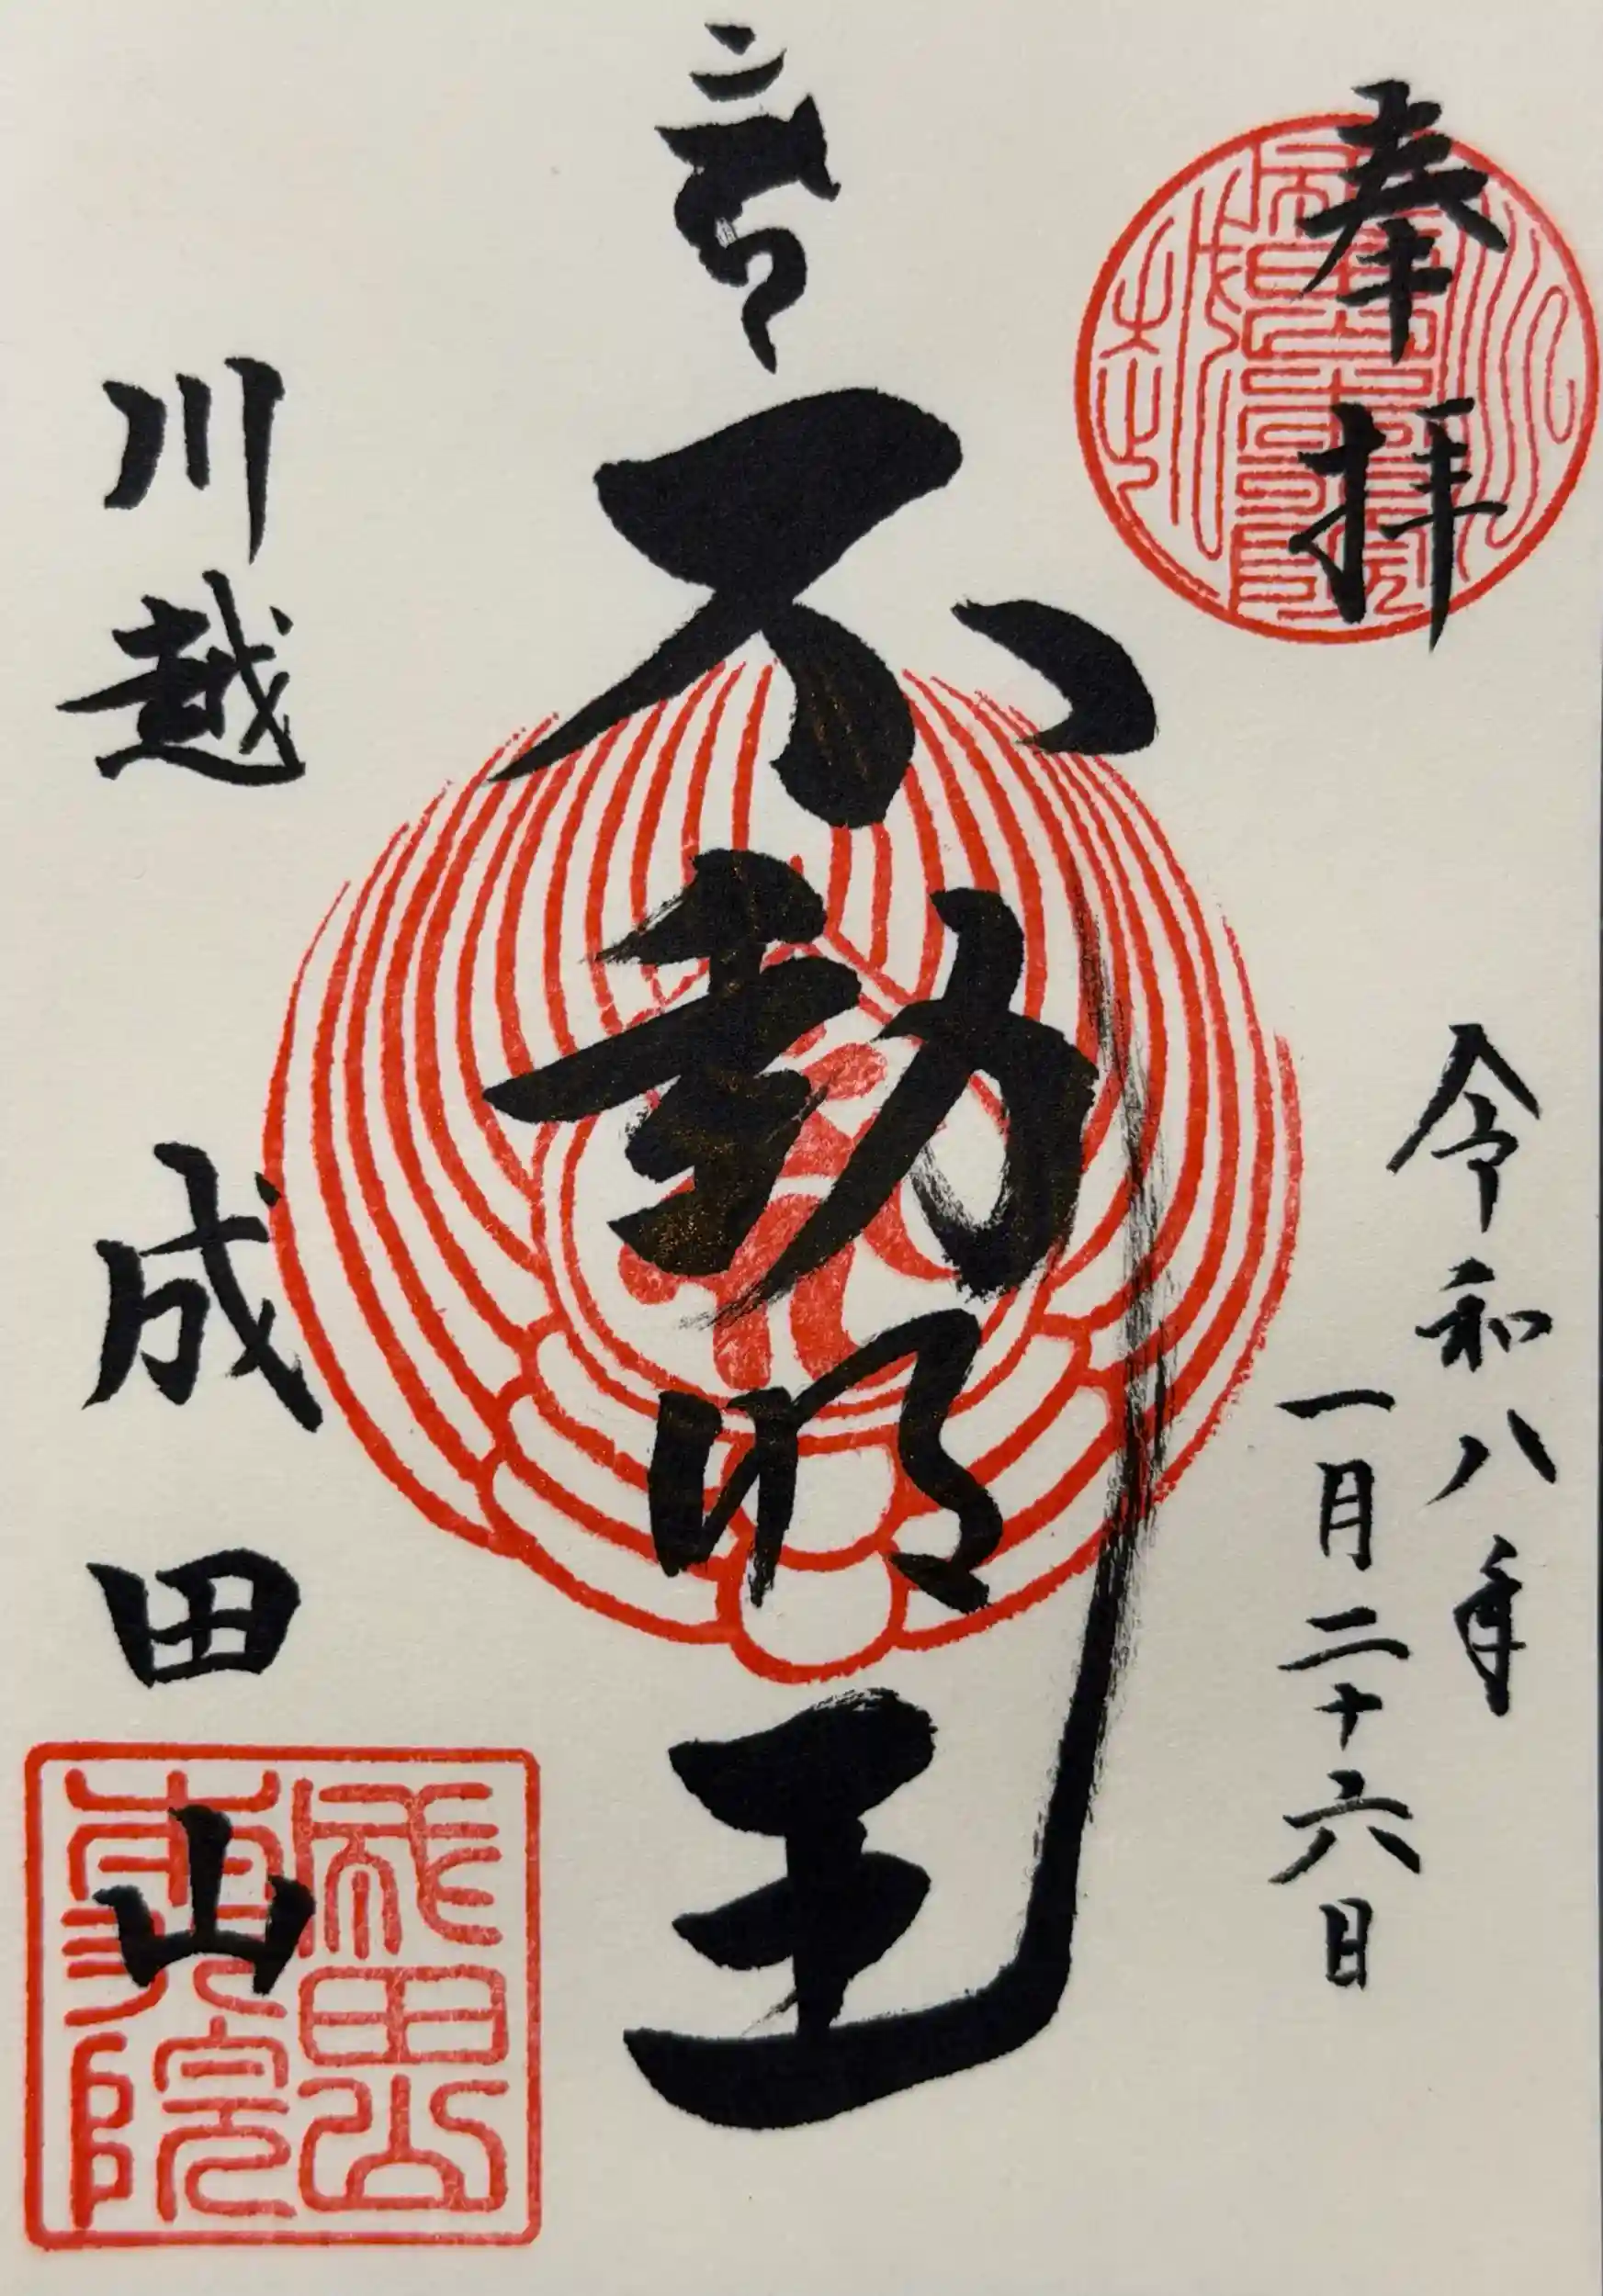 奉拝
令和八年
一月二十六日
不動明王
川越 成田山
成田山
別院